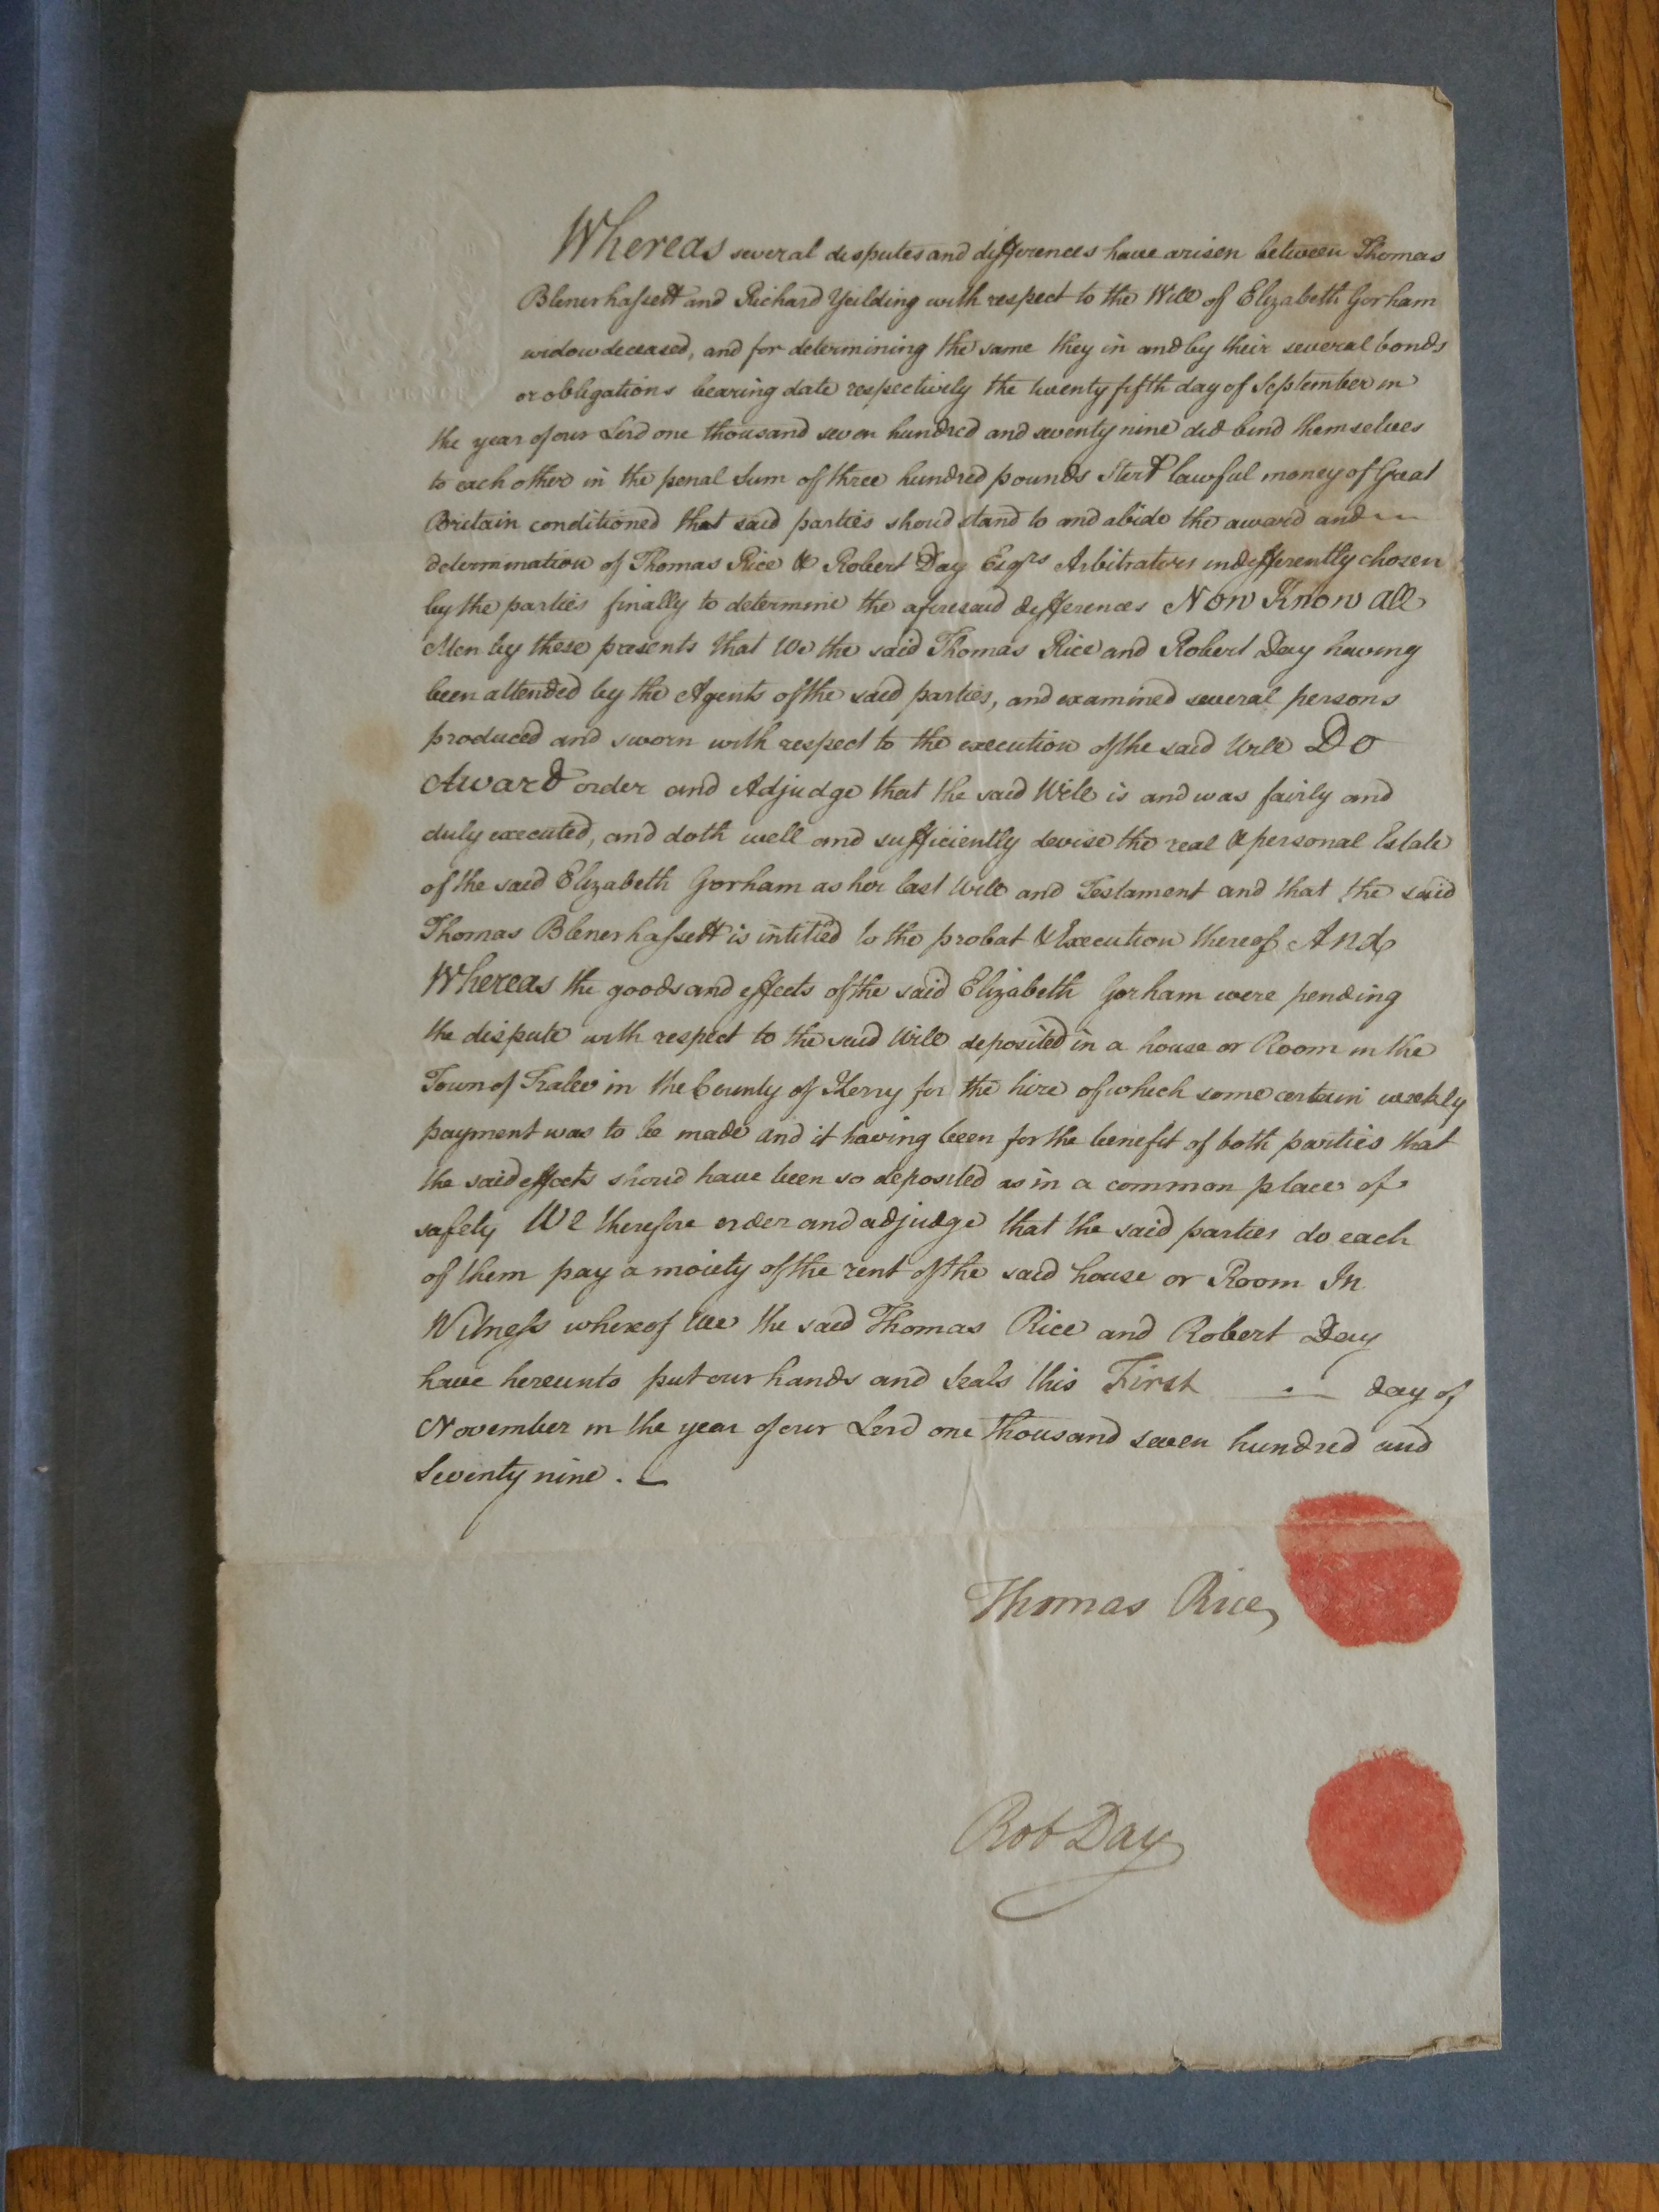 PENCE
Whereas several disputes and differences have arisen between Thomas
Blenerhassett and Richard Yeilding with respect to the Will of Elizabeth Gorham
widow deceased, and for determining the same they in and by their several bonds
or obligations bearing date respectively the twenty fifth day of September in
the year of our Lord one thousand seven hundred and seventy nine did bind themselves
to each other in the penal Sum of three hundred pounds Ster& lawful money of Great
Britain conditioned that said parties shoud stand to and abide the award and
determination of Thomas Rice & Robert Day Esqrs Arbitrators indifferently chosen
by the parties finally to determine the aforesaid differences Now Know all
Men by these presents that We the said Thomas Rice and Robert Day having
been attended by the Agents of the said parties, and examined several persons
produced and sworn with respect to the execution of the said Will Do
Award order and Adjudge that the said Will is and was fairly and
duly executed, and doth well and sufficiently devise the real & personal Estate
of the said Elizabeth Gorham as her last Will and Testament and that the said
Thomas Blenerhassett is intitled to the probat & Execution thereof And
Whereas the goods and effects of the said Elizabeth Gorham were pending
the dispute with respect to the said Will deposited in a house or Room in the
Town of Tralee in the County of Kerry for the hire of which some certain weekly
payment was to be made and it having been for the benefit of both parties that
the said effects shoud have been so deposited as in a common place of
safety We therefore order and adjudge that the said parties do each
of them pay a moiety of the rent of the said house or Room In
Witness whereof We the said Thomas Rice and Robert Day
have hereunto put our hands and Seals this First day of
November in the year of our Lord one thousand seven hundred and
Seventy nine .
Thomas Rice
Rob Day